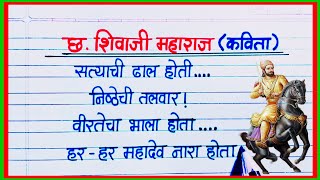 छ. शिवाजी महाराज (कविता)
सत्याची ढाल होती....
निष्ठेची तलवार!
वीरतेचा भाला होता....
हर-हर महादेव नारा होता